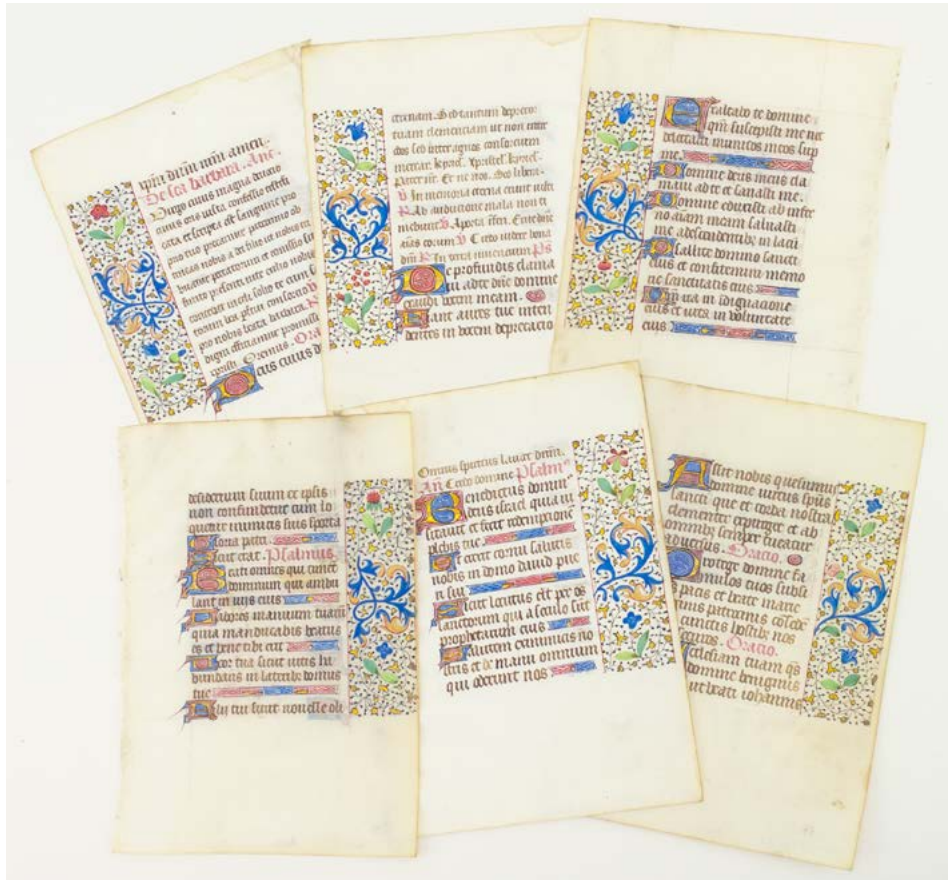 xpm dnm nrm amen.
De sca barbara. Añe.
Virgo cuius magna
cuius oris iusta confessio
cata et scripta est sanguine pro
pro tuo precamine patrimo ob
nobis a dei filio ut nobis
peccatorum et
presenti uite
pro nobis beata barbara. R
digni efficiamur promissio
cristi. Oremus. Oro
Deus cuius d
eternam. Sed tantum deprecor
tuam clemenciam ut non inter
edos sed inter agnos consorcium
merear. kyriel. Xpristel. kyriel.
Pater nr. Et ne nos. Sed libera.
V In memoria eterna erunt iusti
R Ab auditione mala non ti
mebunt V A porta inferi. Erue dñe
aías eorum V Credo uidere bona
dñi R In terra uiuencium Ps
De profundis clama
ui ad te dñe domine
exaudi uocem meam.
Fiant aures tue inten
dentes in uocem deprecacio
Exaltabo te domine
qm̃ suscepisti me nec
delectasti inimicos meos sup
me.
Domine deus meus cla
maui ad te et sanasti me.
Domine eduxisti ab infer
no aiam meam saluasti
me a descendentibz in lacu
Psallite domino sancti
eius et confitemini memo
rie sanctitatis eius
Qm̃ ira in indignacione
eius et uita in uoluntate
eius
desiderium suum ex ipsis
non confundetur cum lo
quetur inimicis suis in porta
Gloria patri.
Sicut erat. Psalmus
Beati omnes qui timent
dominum qui ambu
lant in uijs eius
Labores manuum tuarum
quia manducabis beatus
es et bene tibi erit
Uxor tua sicut uitis ha
bundans in lateribz domus
tue
Filij tui sicut nouelle oli
Omnis spiritus laudet dnm.
An Credo domine Psalm9
Benedictus domin9
deus israel quia ui
sitauit et fecit redemptione
plebis sue
Et erexit cornu salutis
nobis in domo dauid pue
ri sui
Sicut locutus est per os
sanctorum qui a seculo sut
prophetarum eius
Salutem ex inimicis no
stris et de manu omnium
qui oderunt nos
Assit nobis quesumus
domine uirtus spus
sancti que et corda nostra
clementer expurget et ab
omnibz semper tueatur
aduersis. Oracio.
Protege domine fa
mulos tuos subsi
dijs pacis et beate marie
patrocinijs
a cunctis hostibz nos
Oracio.
Ecclesiam tuam qs
domine benignus
ut beati iohannis